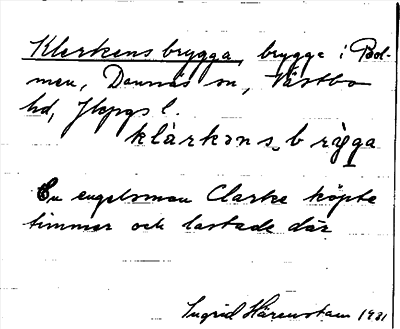 Klerkens brygga, brygge i Bol-
men, Dannäs sn, Västbo
hd, Jkpgs l.
klärkəns brỳga
En engelsman Clarke köpte
timmer och lastade där
Ingrid Härenstam 1931